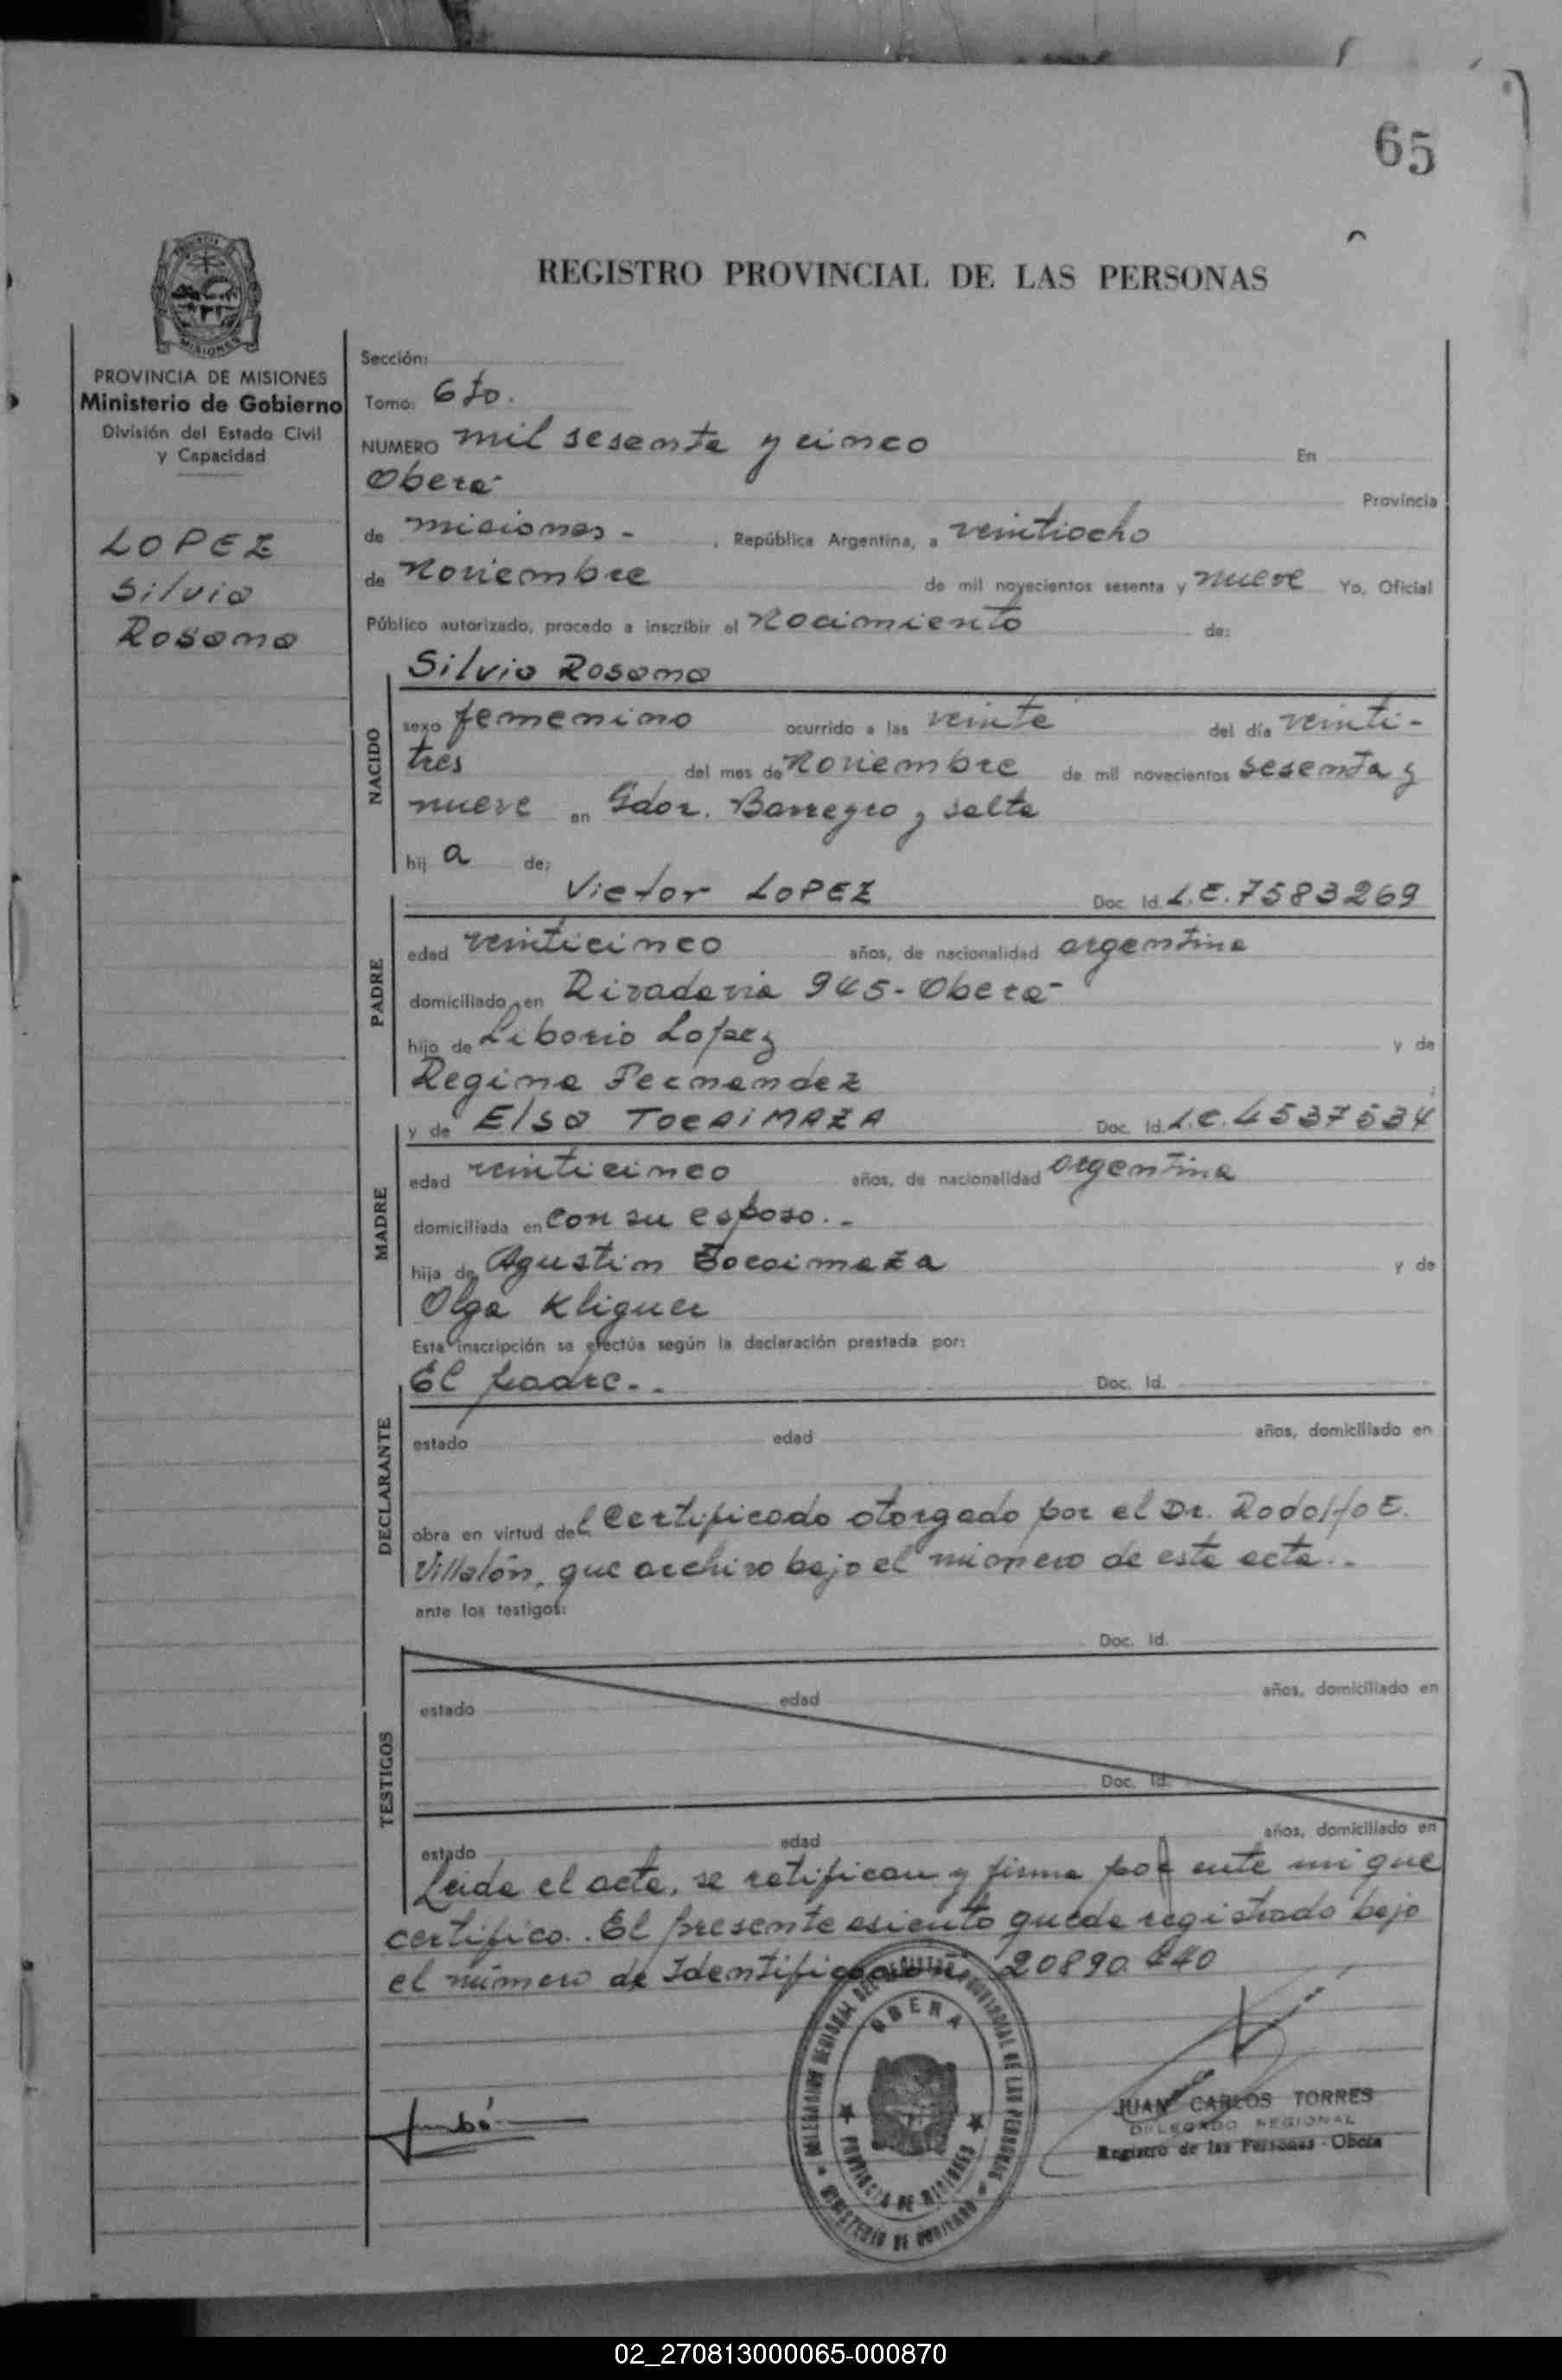 65
REGISTRO PROVINCIAL DE LAS PERSONAS
MISIONES
PROVINCIA DE MISIONES
Ministerio de Gobierno
División del Estado Civil
y Capacidad
LOPEZ
Silvia
Rosana
Sección:
Tomo: 6to.
NUMERO mil sesenta y cinco En
Oberá Provincia
de misiones - , República Argentina, a veintiocho
de Noviembre de mil novecientos sesenta y nueve Yo, Oficial
Público autorizado, procedo a inscribir el Nacimiento de:
Silvia Rosana
NACIDO
sexo femenino ocurrido a las veinte del día veinti-
tres del mes de Noviembre de mil novecientos sesenta y
nueve en Gdor. Barreyro y salta
hij a de:
Victor LOPEZ Doc. Id. L.E. 7583269
PADRE
edad veinticinco años, de nacionalidad argentina
domiciliado en Rivadavia 945 - Oberá
hijo de Liborio Lopez y de
Regina Fernandez
y de Elsa TOCAIMAZA Doc. Id. L.C. 4537534
MADRE
edad veinticinco años, de nacionalidad argentina
domiciliada en con su esposo. -
hija de Agustin Tocaimaza y de
Olga Kliguer
Esta inscripción se efectúa según la declaración prestada por:
El padre. - Doc. Id.
DECLARANTE
estado edad años, domiciliado en
obra en virtud del Certificado otorgado por el Dr. Rodolfo E.
Villalón, que archivo bajo el número de esta acta. -
ante los testigos:
Doc. Id.
TESTIGOS
estado edad años, domiciliado en
Doc. Id.
estado edad años, domiciliado en
Leida el acta, se ratifican y firma por ante mi que
certifico. . El presente asiento queda registrado bajo
el número de Identificacion 20890.440
DELEGACION REGIONAL DEL REGISTRO PROVINCIAL DE LAS PERSONAS
OBERA
PROVINCIA DE MISIONES
MINISTERIO DE GOBIERNO
JUAN CARLOS TORRES
DELEGADO REGIONAL
Registro de las Personas - Oberá
02_270813000065-000870